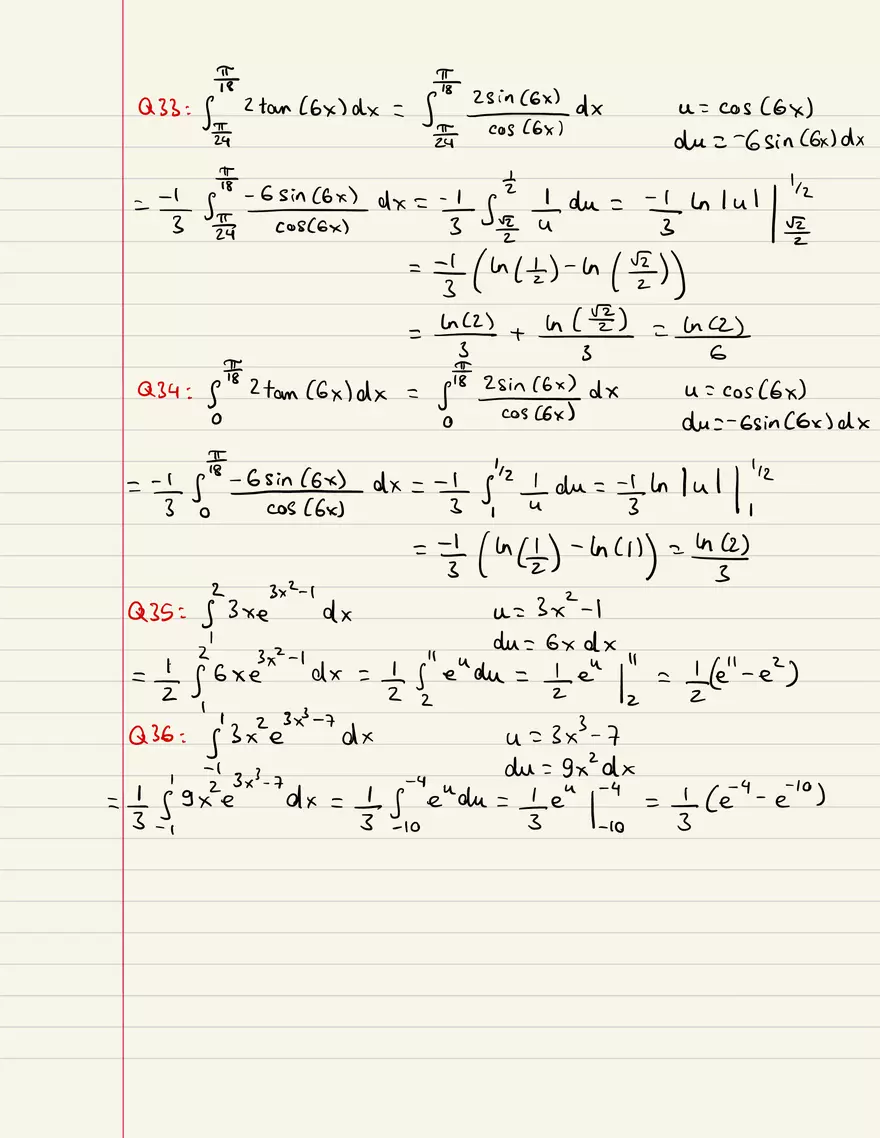 Q33: ∫_{π/24}^{π/18} 2 tan (6x) dx = ∫_{π/24}^{π/18} \frac{2 sin (6x)}{cos (6x)} dx    u = cos (6x)
du = -6 sin (6x) dx
= \frac{-1}{3} ∫_{π/24}^{π/18} \frac{-6 sin (6x)}{cos(6x)} dx = \frac{-1}{3} ∫_{\frac{√2}{2}}^{\frac{1}{2}} \frac{1}{u} du = \frac{-1}{3} ln |u| |_{\frac{√2}{2}}^{1/2}
= \frac{-1}{3} (ln (\frac{1}{2}) - ln (\frac{√2}{2}))
= \frac{ln(2)}{3} + \frac{ln (\frac{√2}{2})}{3} = \frac{ln(2)}{6}
Q34: ∫_{0}^{π/18} 2 tan (6x) dx = ∫_{0}^{π/18} \frac{2 sin (6x)}{cos (6x)} dx    u = cos (6x)
du = -6 sin (6x) dx
= \frac{-1}{3} ∫_{0}^{π/18} \frac{-6 sin (6x)}{cos (6x)} dx = \frac{-1}{3} ∫_{1}^{1/2} \frac{1}{u} du = \frac{-1}{3} ln |u| |_{1}^{1/2}
= \frac{-1}{3} (ln (\frac{1}{2}) - ln (1)) = \frac{ln (2)}{3}
Q35: ∫_{1}^{2} 3xe^{3x^2-1} dx    u = 3x^2 - 1
du = 6x dx
= \frac{1}{2} ∫_{1}^{2} 6xe^{3x^2-1} dx = \frac{1}{2} ∫_{2}^{11} e^u du = \frac{1}{2} e^u |_{2}^{11} = \frac{1}{2} (e^{11} - e^2)
Q36: ∫_{-1}^{1} 3x^2 e^{3x^3-7} dx    u = 3x^3 - 7
du = 9x^2 dx
= \frac{1}{3} ∫_{-1}^{1} 9x^2 e^{3x^3-7} dx = \frac{1}{3} ∫_{-10}^{-4} e^u du = \frac{1}{3} e^u |_{-10}^{-4} = \frac{1}{3} (e^{-4} - e^{-10})